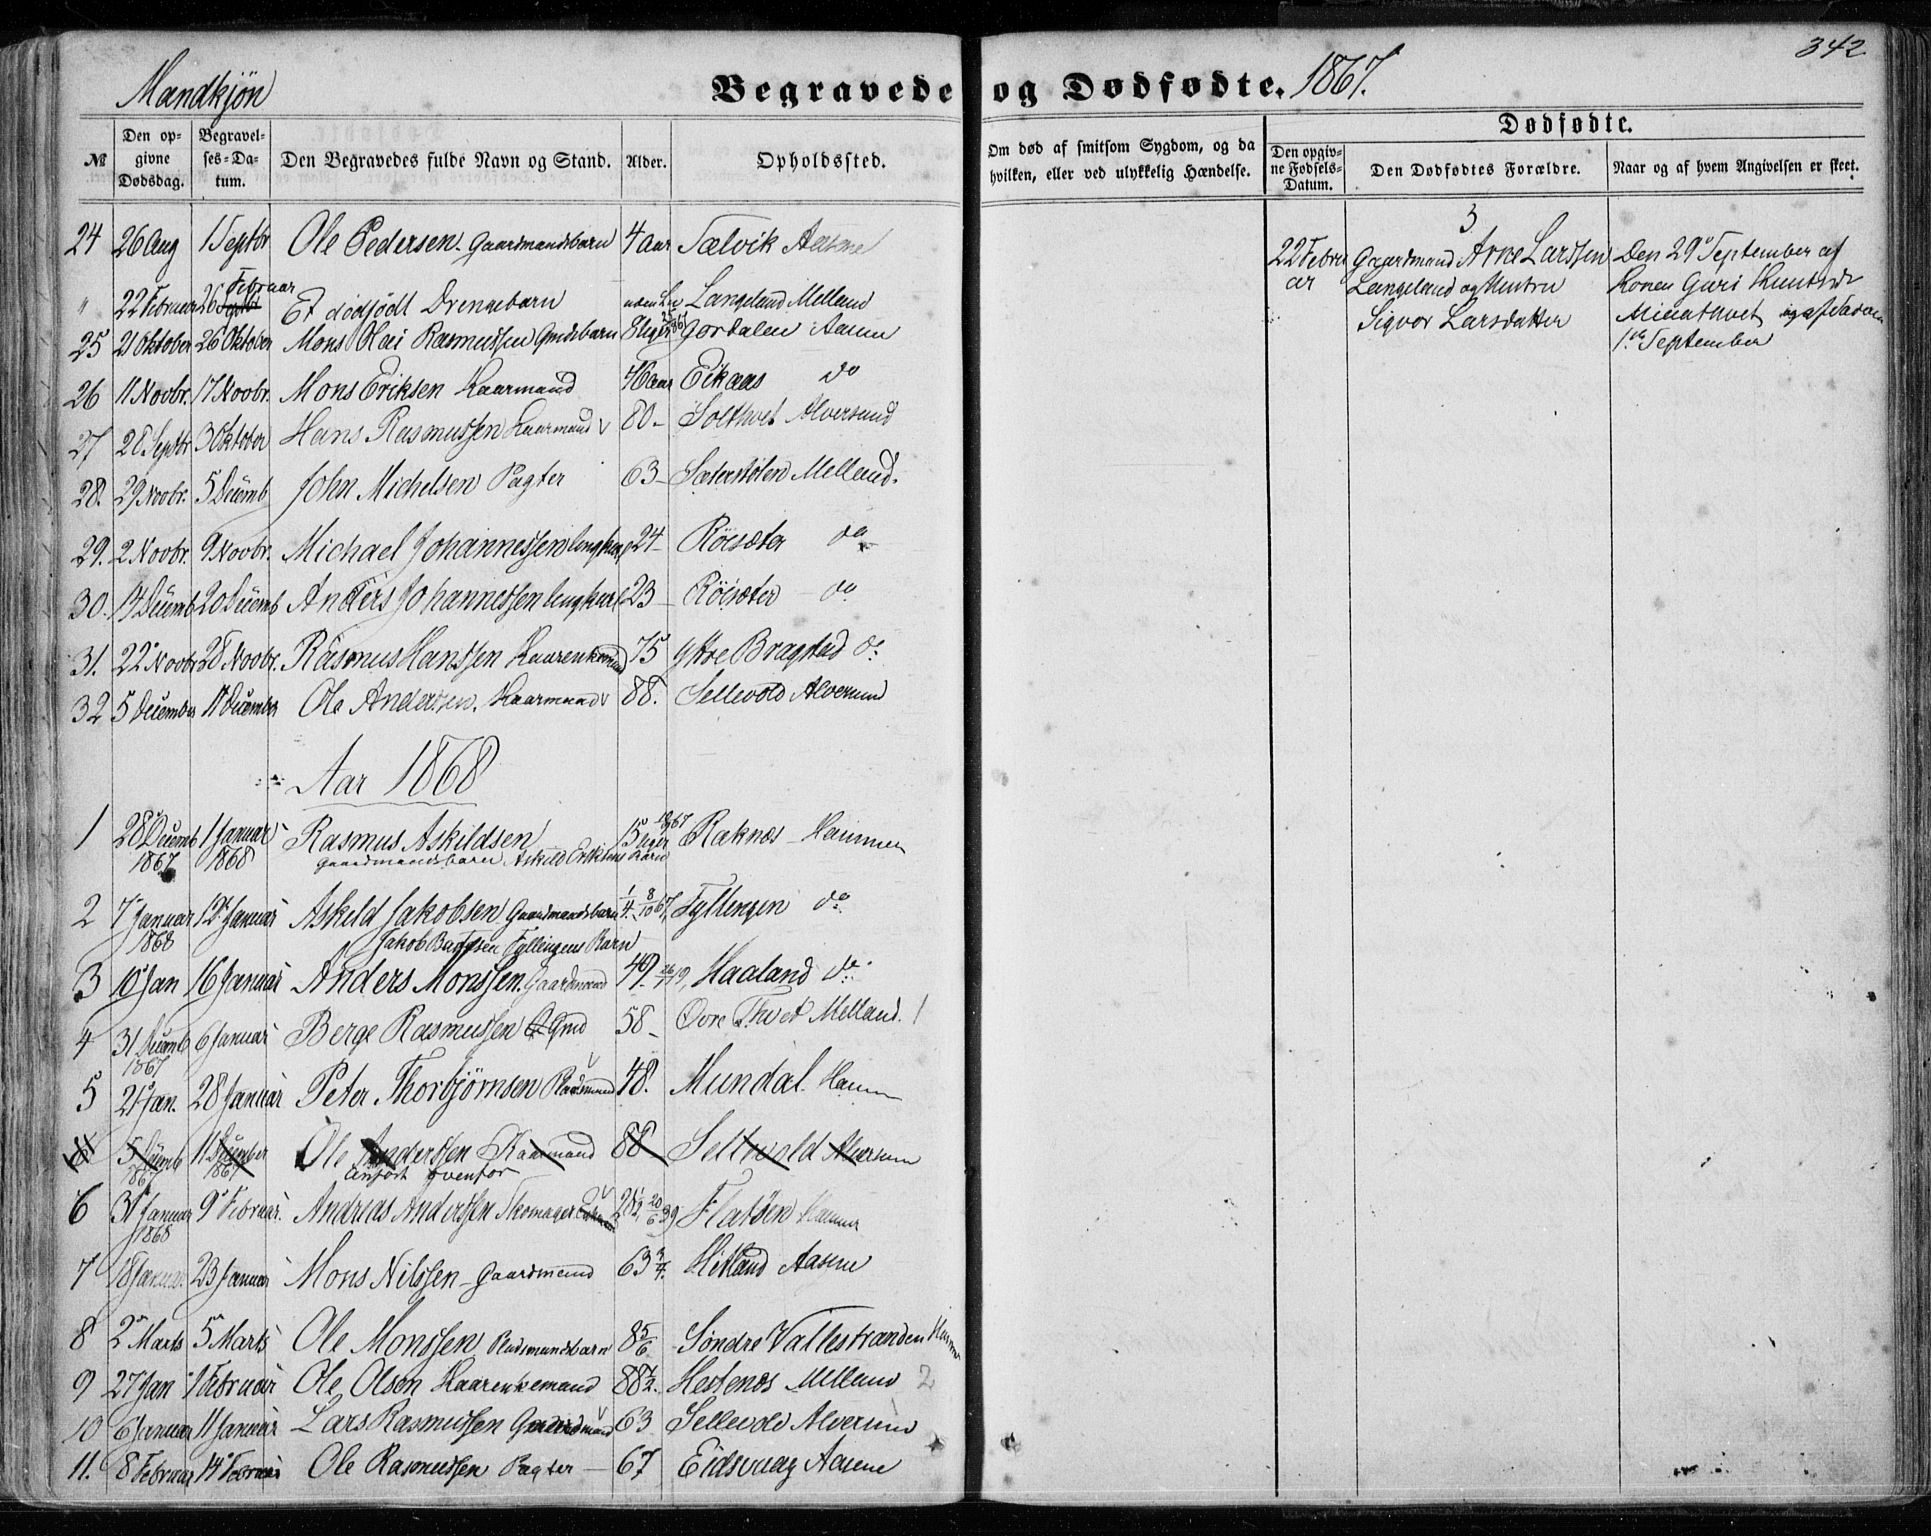 342
Mandkjön Begravede og Dødfødte. 1867.
№ Den opgivne Dødsdag. Begravelses-Datum. Den Begravedes fulde Navn og Stand. Alder. Opholdssted. Om død af smitsom Sygdom, og da hvilken, eller ved ulykkelig Hændelse. Dødfødte. Den opgivne Fødsels-Datum. Den Dødfødtes Forældre. Naar og af hvem Angivelsen er skeet.
24 26 Aug 1 Septbr Ole Pedersen Gaardmandsbarn 4 Aar Tælvik Aasene
3
22 Februar Gaardmand Arne Larssen Langeland og Hustru Sigvor Larsdatter
Den 29 September af Konen Guri Knutsdr og af Faderen 1ste September
" 22 Februar 26 Februar Et dødfødt Drengebarn Langeland Melland
25 21 Oktober 26 Oktober Mons Kai Rasmussen Gmdsbarn 8 Uger Gordalen Aasene
26 11 Novbr. 17 Novbr. Mons Eriksen Kaarmand 46 aar Eikaas do
27 28 Septbr 3 Oktober Hans Rasmussen Kaarmand 80 - Solthvet Alversund
28. 29 Novbr. 5 Decemb John Michelsen Pagter 63 - Sæterstølen Melland.
29. 2 Novbr. 9 Novbr. Michael Johannessen Ungkarl 24 - Röisæter do
30. 14 Decemb 20 Decemb Anders Johannessen Ungkarl 23 - Röisæter do
31. 22 Novbr 28 Novbr. Rasmus Hanssen Kaarenkemand 75 ytre Bragstad do
32 5 December 11 December Ole Anderssen. Kaarmand 88. Sellevold Alversund
Aar 1868
1 28 Decemb 1867 1 Januar 1868 Rasmus Askildsen 15 Uger 1867 Raknæs Hammer
Gaardmandsbarn Askild Eriksens Barn
2 7 Januar 1868 12 Januar Askild Jakobsen Gaardmandsbarn 1/4 8/10 67. Fyllingen do
Jakob Fyllingens Barn
3 10 Jan 16 Januar Anders Monssen. Gaardmand 49. Haaland do
4 31 Decemb 1867 6 Januar Berge Rasmussen Gmd 58 - Övre Thvet Melland.
5 21 Jan. 28 Januar Peter Thorbjørnsen Pladsmand 48. Mundal Hammer
6 5 Decemb 1867 11 December 1867 Ole Anderssen Kaarmand 88 Sellevold Alversund
anført ovenfor
6 31 Januar 1868 9 Februar. Andreas Anderssen Skomager 28 1/2 20/6 39 Flatöen Hammer
7 18 Januar 23 Januar Mons Nilssen - Gaardmand 63 3/4. Hitland Aasene
8 2 Marts 5 Marts Ole Monssen Pladsmandsbarn 8 5/6 Søndre Vallestranden Hammer
9 27 Jan 1 Februar Ole Olsen Kaarenkemand 88 1/2. Hestenæs Melland 2
10 6 Januar 11 Januar Lars Rasmussen Gaardmand 63 Sellevold Alversund
11. 8 Februar 14 Februar Ole Rasmussen Pagter - 67 Eidsvaag Aasene